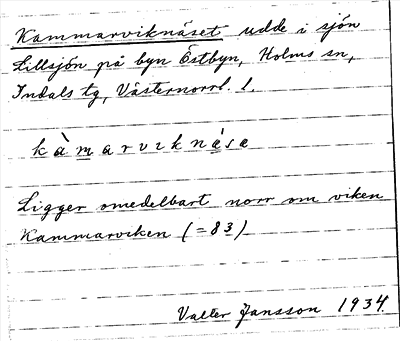 Kammarviknäset udde i sjön
Lillsjön på byn Östbyn, Holms sn,
Indals tg, Västernorrl. l.
kàmarviknésa
Ligger omedelbart norr om viken
Kammarviken (= 83)
Valter Jansson 1934.